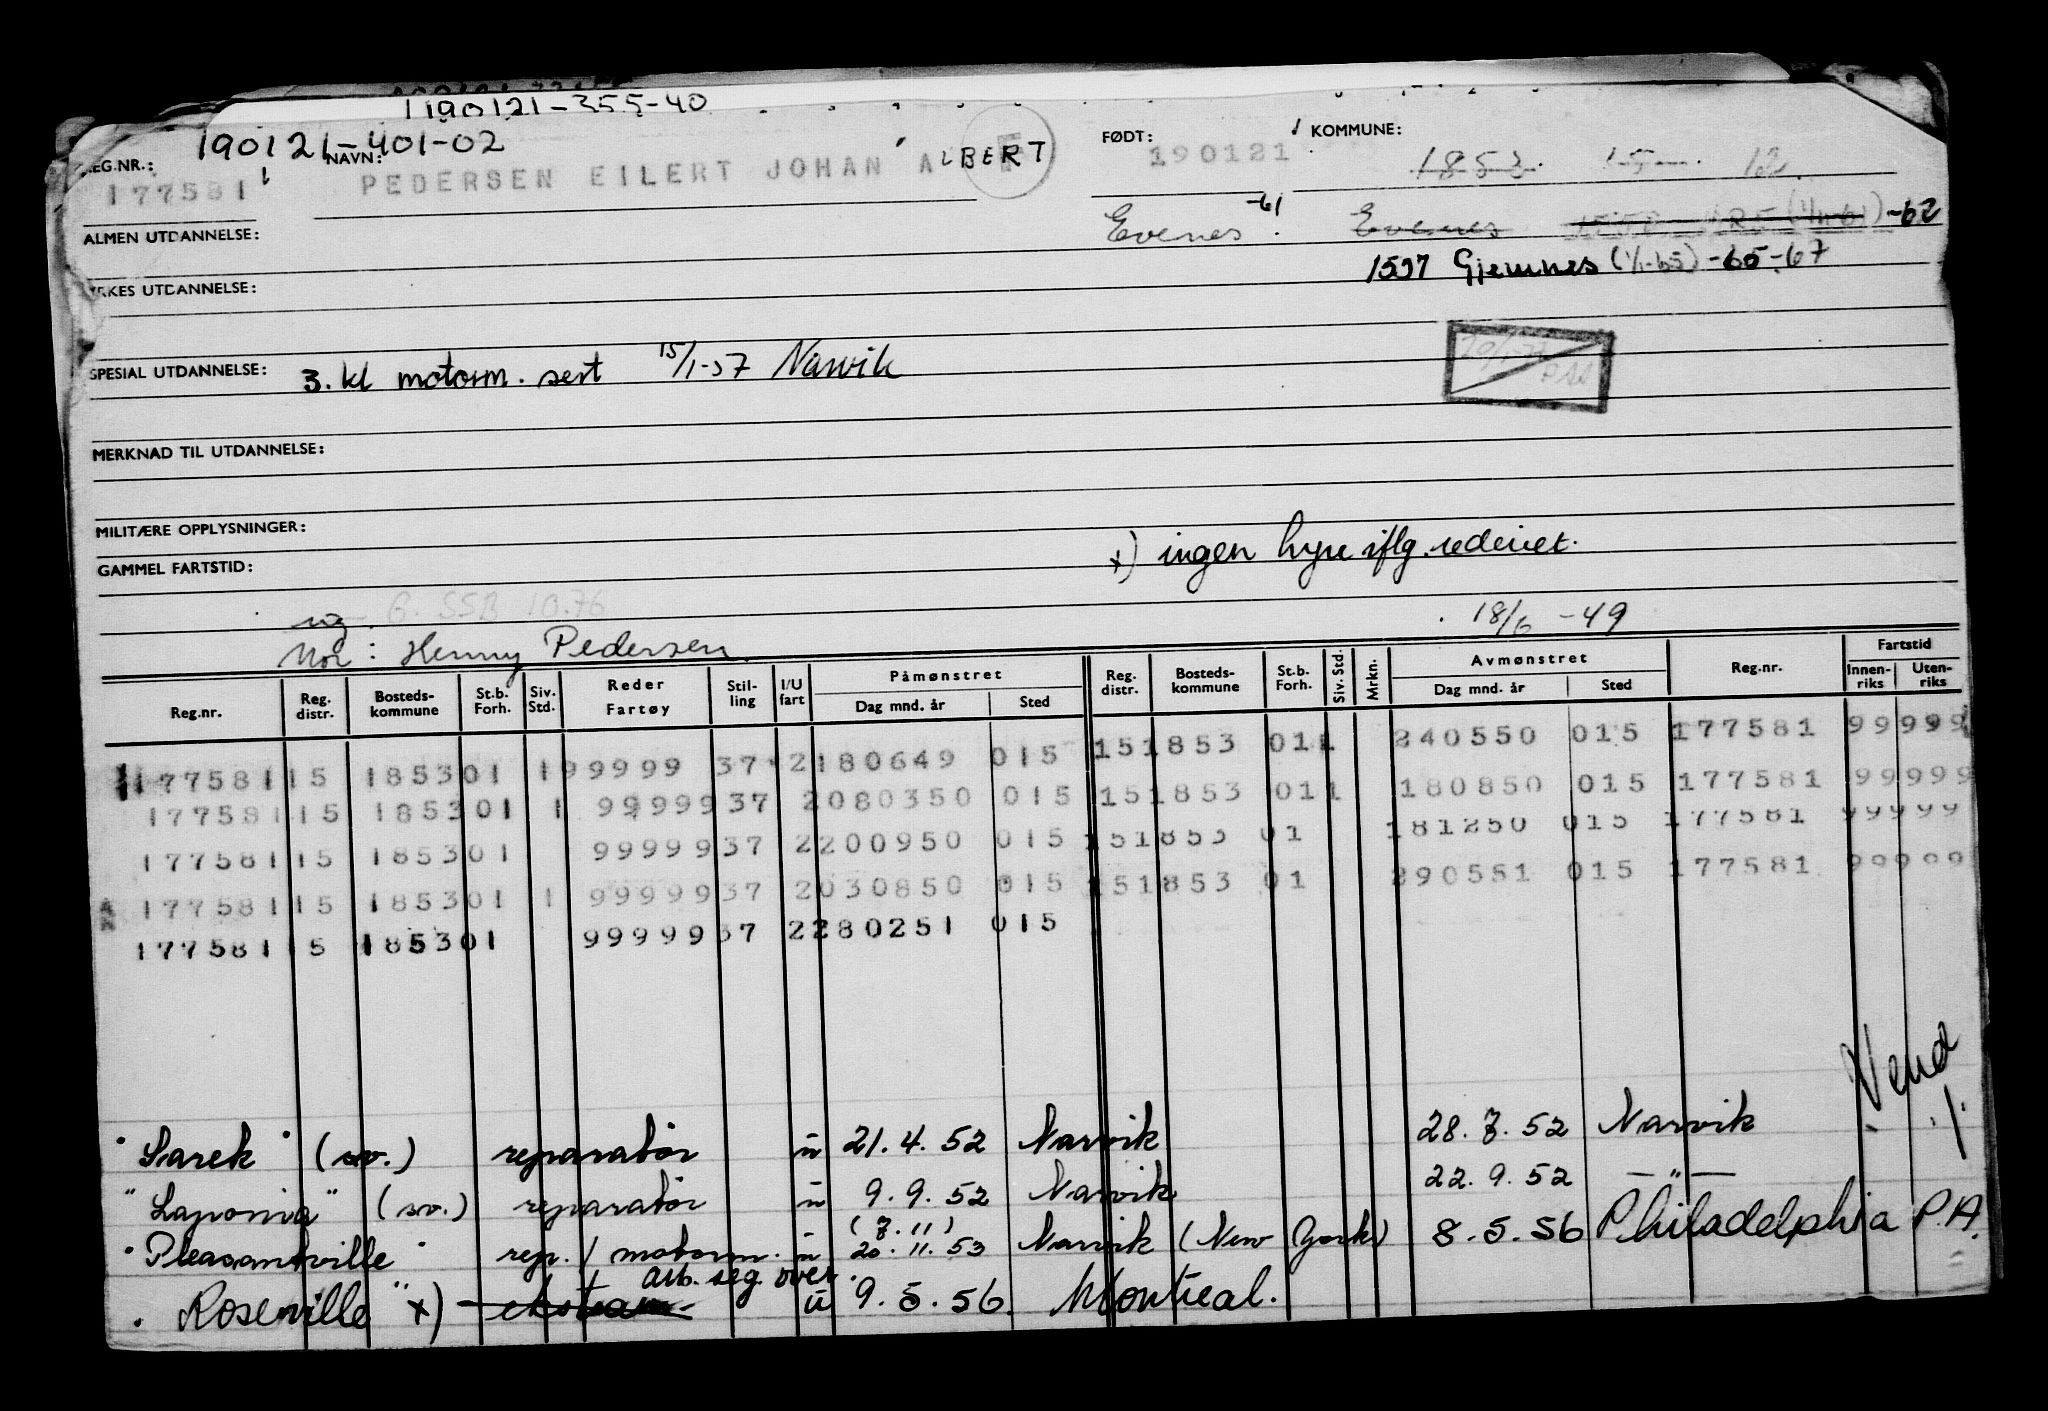 190121-355-40
190121-401-02
REG.NR.: 177581 NAVN: PEDERSEN EILERT JOHAN ALBERT F FØDT: 190121 KOMMUNE: 1853
ALMEN UTDANNELSE: Evenes -61 Evenes -62
YRKES UTDANNELSE: 1557 Gjemnes (1/1-65) -65-67
SPESIAL UTDANNELSE: 3. kl motorm. sert 15/1-57 Narvik
MERKNAD TIL UTDANNELSE:
MILITÆRE OPPLYSNINGER:
x) ingen hyre iflg. rederiet.
GAMMEL FARTSTID:
ug.
Mor: Henny Pedersen. 18/6 -49
Reg.nr. Reg. distr. Bosteds-kommune St.b. Forh. Siv. Std. Reder Fartøy Stil-ling I/U fart Påmønstret Dag mnd. år Sted Reg. distr. Bosteds-kommune St.b. Forh. Siv. Std. Mrkn. Avmønstret Dag mnd. år Sted Reg.nr. Fartstid Innen-riks Uten-riks
177581 15 1853 01 1 99999 37 2 180649 015 15 1853 01 1 240550 015 177581 99999
177581 15 1853 01 1 99999 37 2 080350 015 15 1853 01 1 180850 015 177581 99999
177581 15 1853 01 99999 37 2 200950 015 15 1853 01 181250 015 177581 99999
177581 15 1853 01 1 99999 37 2 030850 015 15 1853 01 290551 015 177581 99999
177581 15 1853 01 99999 37 2 280251 015
Vend ./.
"Sarek" (sv.) reparatør u 21.4.52 Narvik 28.7.52 Narvik
"Laponia" (sv.) reparatør u 9.9.52 Narvik 22.9.52 — " —
"Pleasantville" rep./motorm. u (7.11) 20.11.53 Narvik (New York) 8.5.56 Philadelphia P.A.
"Roseville" x) arb. seg over. u 9.5.56. Montreal.